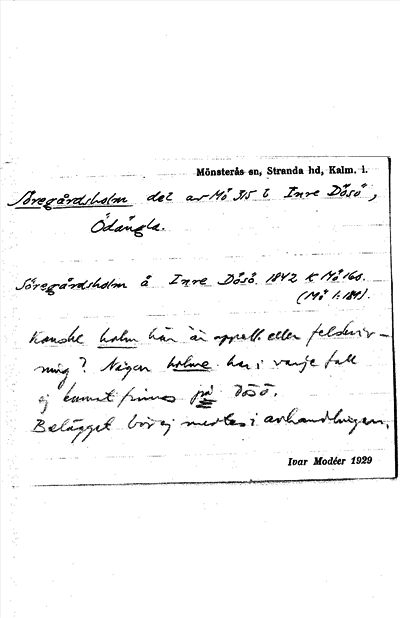 Mönsterås sn, Stranda hd, Kalm. l.
Söregårdsholm del av Mö 315 i Inre Dösö,
Ödängla.
Söregårdsholm å Inre Dösö 1842 K Mö 160.
(Mö 1:184).
Kanske holm här är appell. eller felskriv-
ning? Någon holme har i varje fall
ej kunnat finnas på Dösö.
Belägget bör ej medtas i avhandlingen.
Ivar Modéer 1929